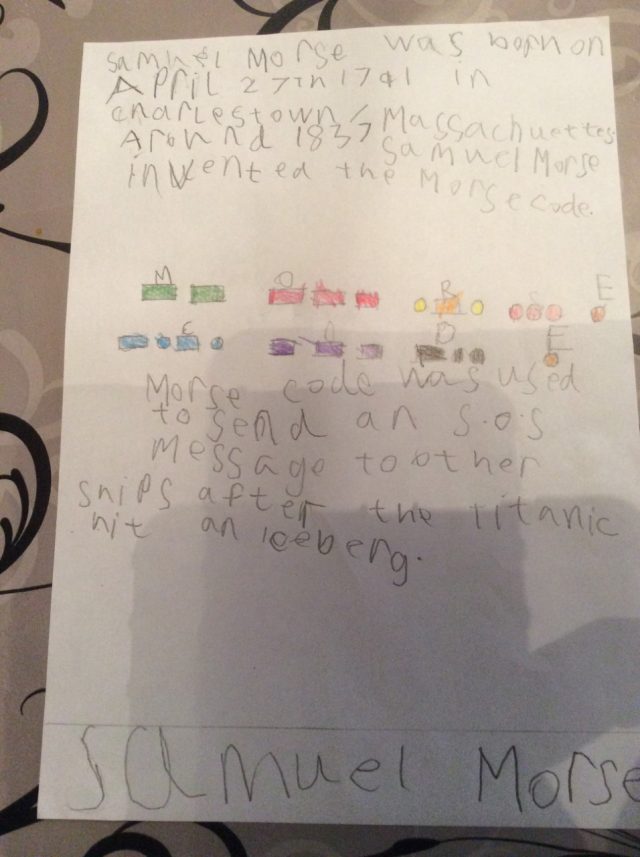 Samuel Morse was born on
April 27th 1791 in
charlestown, Massachuettes.
Around 1837 Samuel Morse
invented the Morse code.
M O R S E
C O D E
Morse code was used
to send an S.O.S
message to other
ships after the Titanic
hit an Iceberg.
Samuel Morse